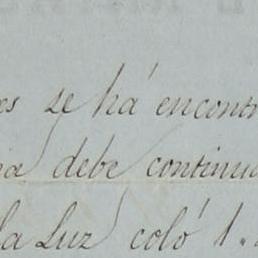 es se há encontr
debe continu
la Luz coló 1.